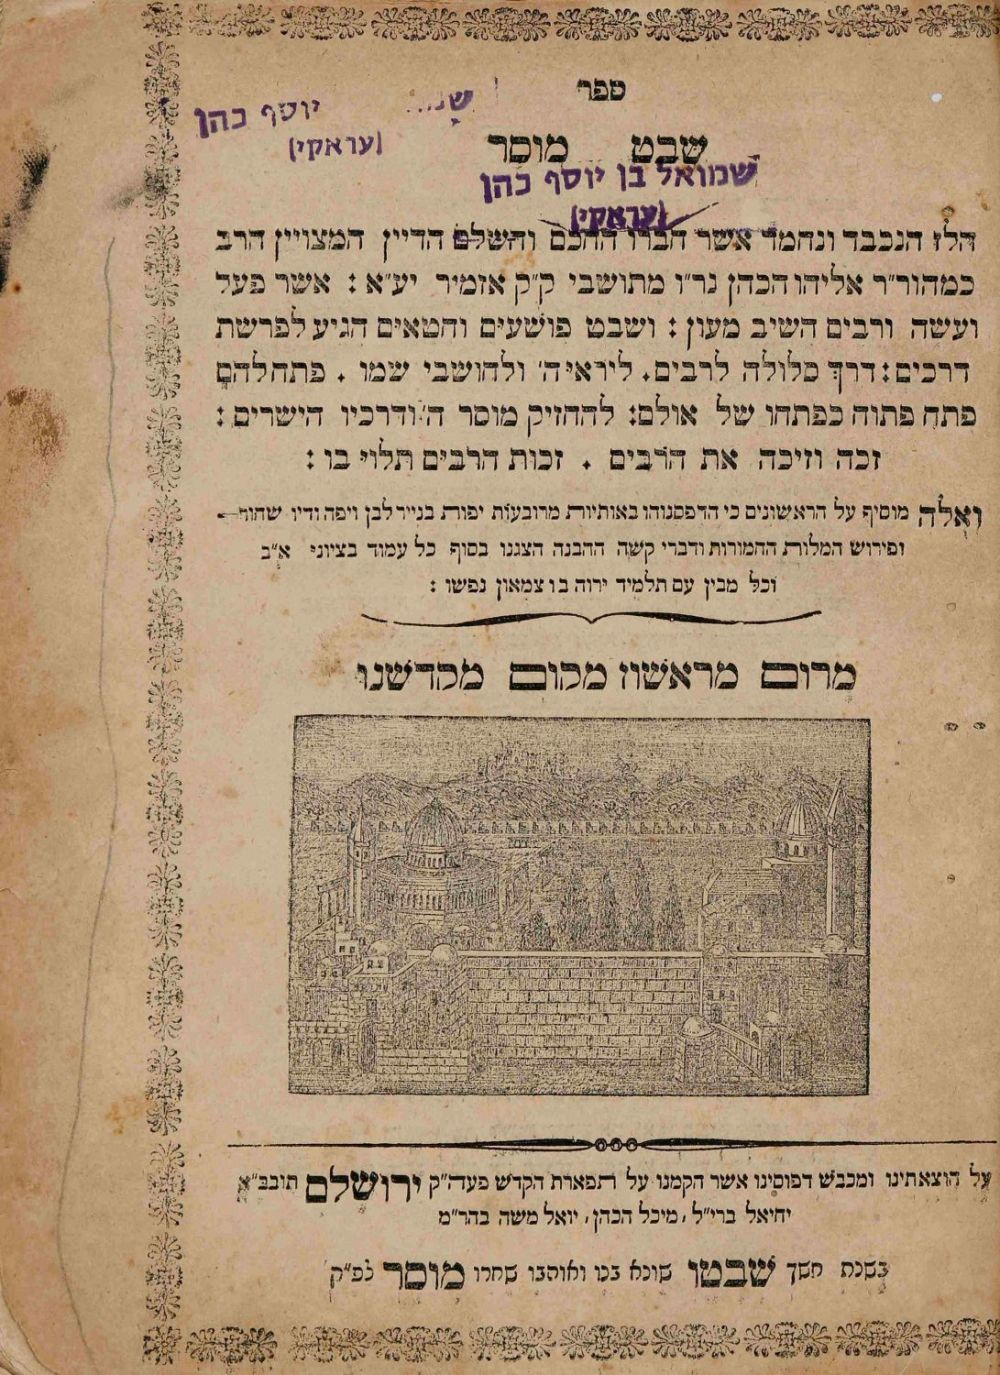 ספר
יוסף כהן
(עראקי)
שבט מוסר
שמואל בן יוסף כהן
(עראקי)
הלז הנכבד ונחמד אשר חברו החכם והשלם הדיין המצויין הרב
כמהור״ר אליהו הכהן נר״ו מתושבי ק״ק אזמיר יע״א : אשר פעל
ועשה ורבים השיב מעון : ושבט פושעים וחטאים הגיע לפרשת
דרכים : דרך סלולה לרבים . ליראי ה׳ ולחושבי שמו . פתח להם
פתח פתוח כפתחו של אולם : להחזיק מוסר ה׳ ודרכיו הישרים :
זכה וזיכה את הרבים . זכות הרבים תלוי בו :
ואלה מוסיף על הראשונים כי הדפסנוהו באותיות מרובעות יפות בנייר לבן ויפה ודיו שחור
ופירוש המלות החמורות ודברי קשה ההבנה הצגנו בסוף כל עמוד בציוני א״ב
וכל מבין עם תלמיד ירוה בו צמאון נפשו :
מרום מראשון מקום מקדשנו
על הוצאתינו ומכבש דפוסינו אשר הקמנו על תפארת הקדש פעה״ק ירושלם תובב״א
יחיאל ברי״ל , מיכל הכהן , יואל משה בהר״מ
בשנת חשך שבטו שונא בנו ואוהבו שחרו מוסר לפ״ק